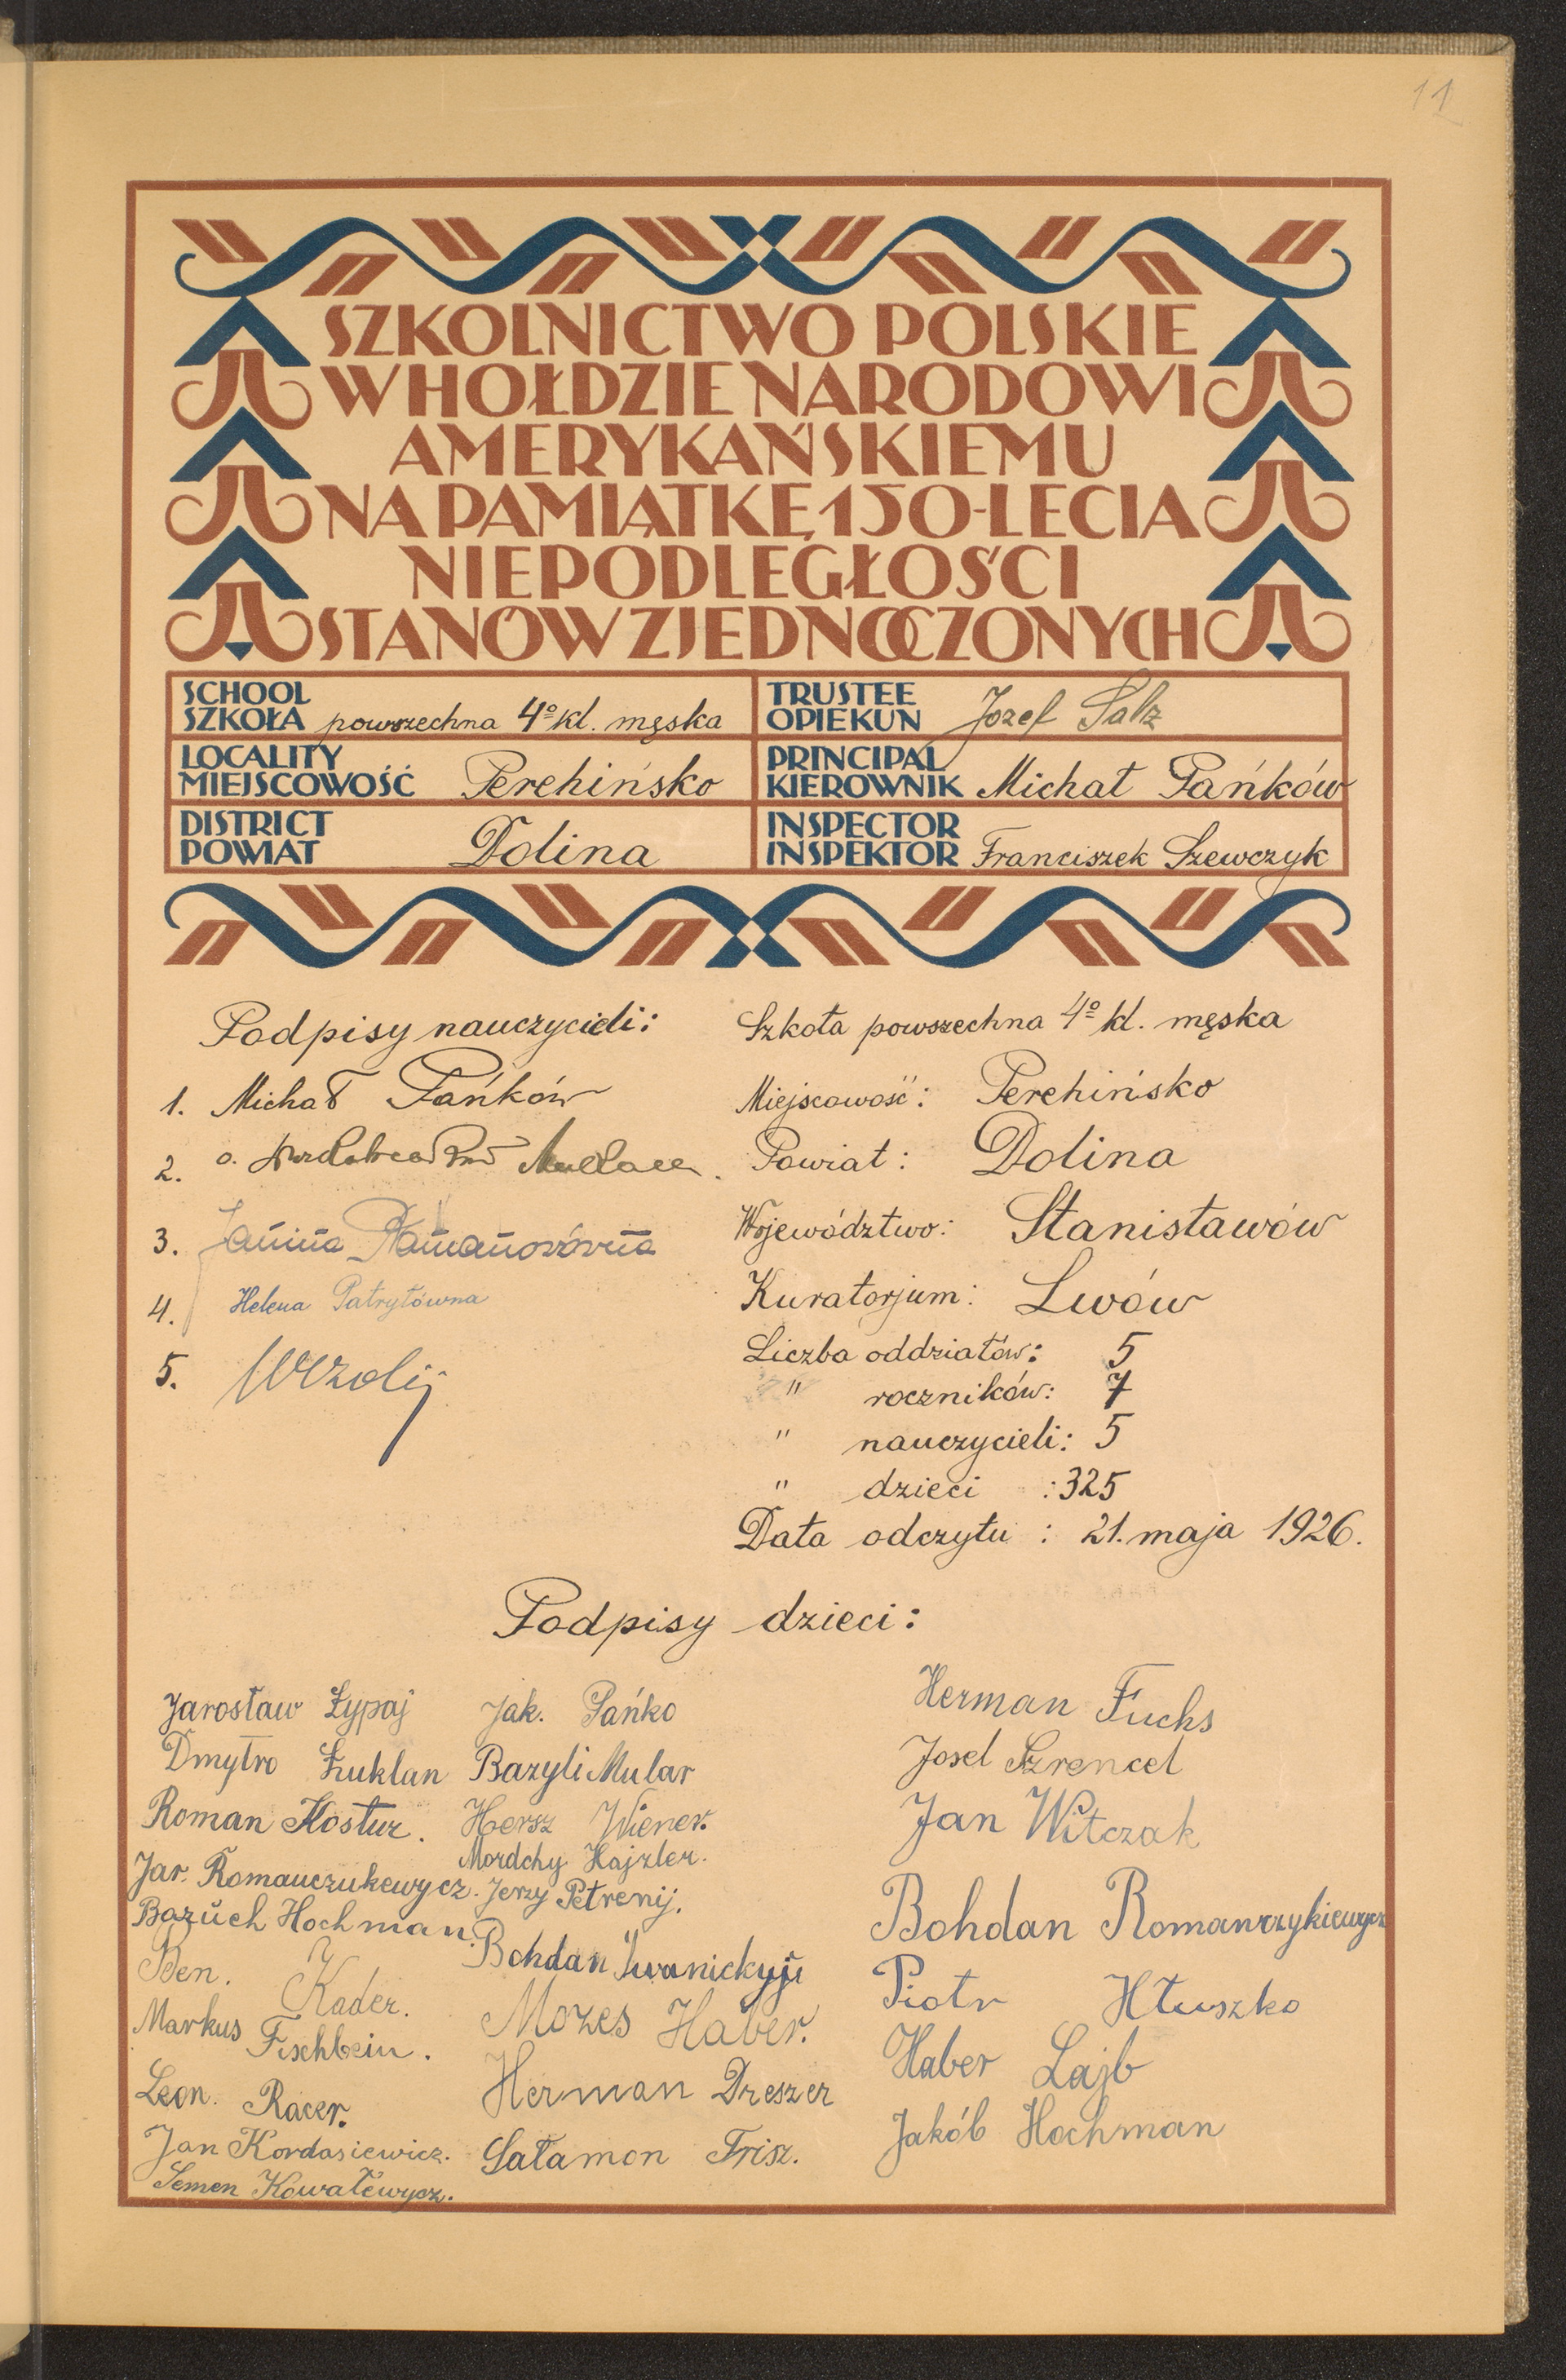 11
SZKOLNICTWO POLSKIE
W HOŁDZIE NARODOWI
AMERYKAŃSKIEMU
NA PAMIĄTKĘ 150-LECIA
NIEPODLEGŁOŚCI
STANÓW ZJEDNOCZONYCH
SCHOOL
SZKOŁA powszechna 4º kl. męska
TRUSTEE
OPIEKUN Jozef Salz
LOCALITY
MIEJSCOWOŚĆ Perehińsko
PRINCIPAL
KIEROWNIK Michał Pańków
DISTRICT
POWIAT Dolina
INSPECTOR
INSPEKTOR Franciszek Szewczyk
Podpisy nauczycieli:
1. Michał Pańków
2. o.
3. Janina Romanowówna
4. Helena Patryłówna
5.
Szkoła powszechna 4º kl. męska
Miejscowość: Perehińsko
Powiat: Dolina
Województwo: Stanisławów
Kuratorjum: Lwów
Liczba oddziałów: 5
" roczników: 7
" nauczycieli: 5
" dzieci : 325
Data odczytu : 21. maja 1926.
Podpisy dzieci:
Jarosław Łypaj
Dmytro Łuklan
Roman Kostur.
Jar. Romanczukewycz.
Baruch Hochman.
Ben. Kader.
Markus Fischbein.
Leon. Racer.
Jan Kordasiewicz.
Semen Kowałewycz.
Jak. Pańko
Bazyli Mular
Hersz Wiener.
Mordchy Hajzler.
Jerzy Petrenij.
Bohdan Iwanickyji
Mozes Haber.
Herman Dreszer
Sałamon Frisz.
Herman Fuchs
Josel Szrencel
Jan Witczak
Bohdan Romanczykiewycz
Piotr Hłuszko
Haber Lajb
Jakób Hochman